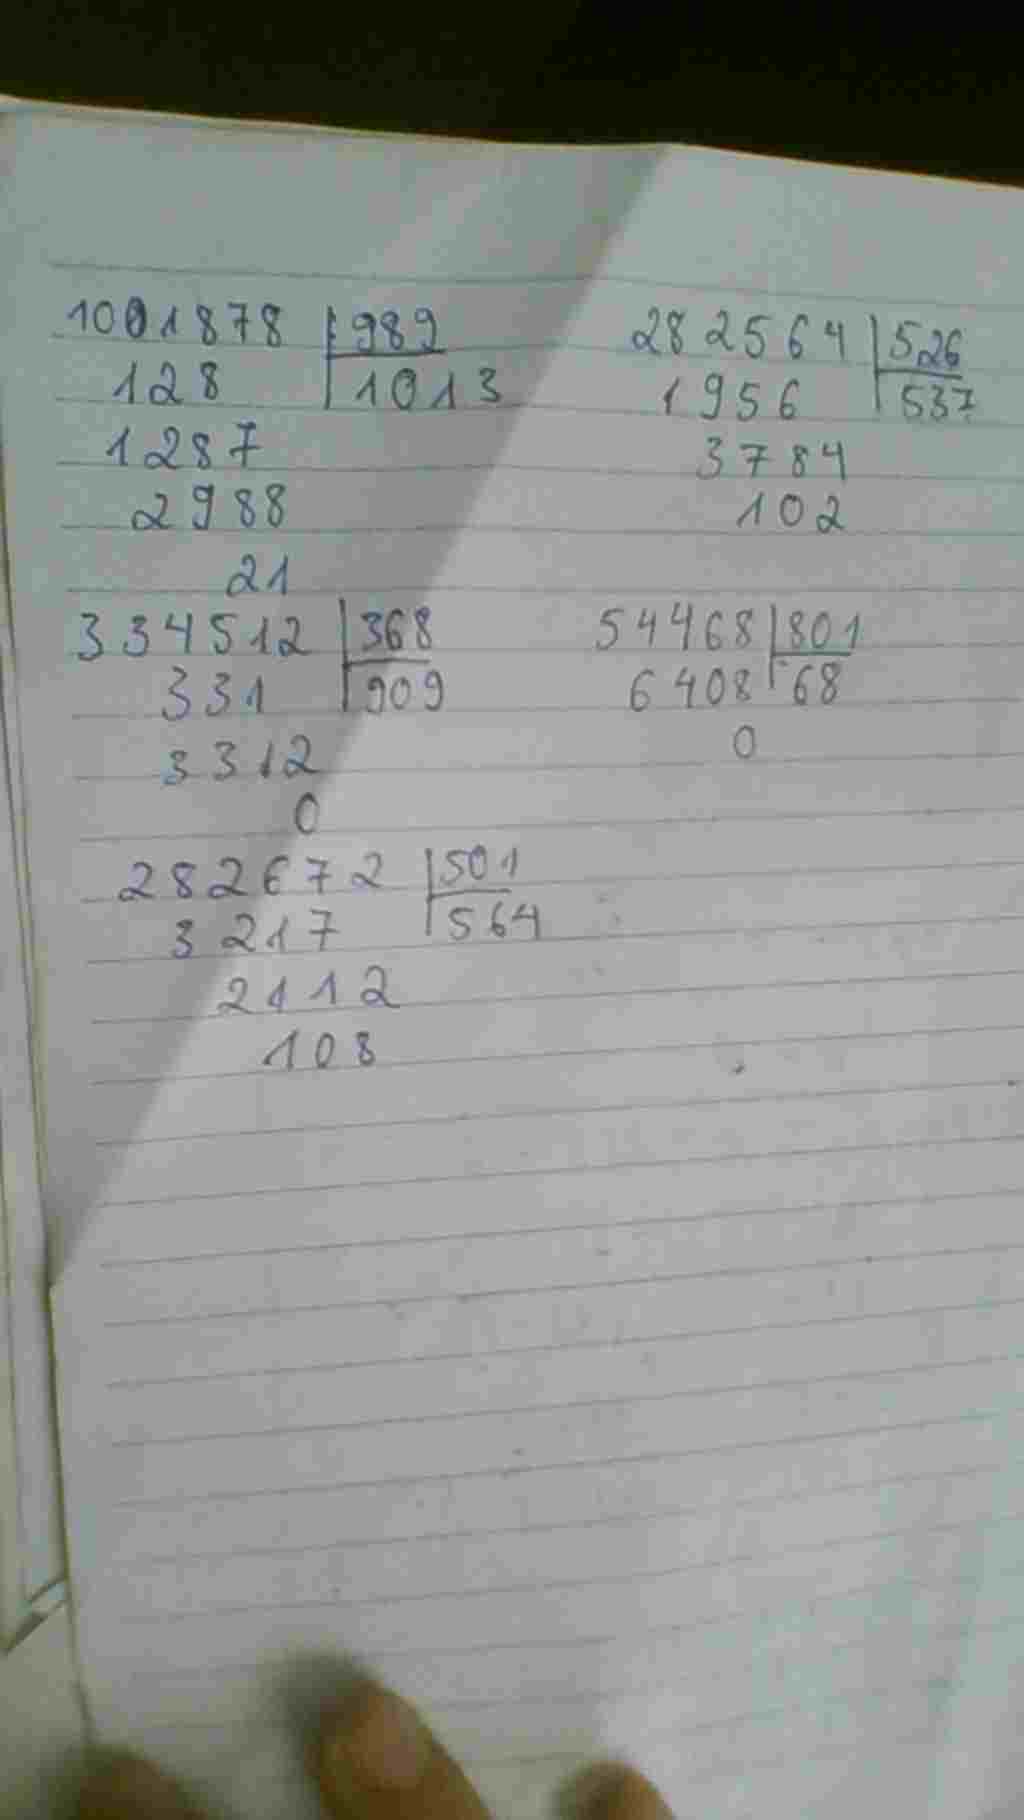 1001878 989
128 1013
1287
2988
21
282564 526
1956 537
3784
102
334512 368
331 909
3312
0
54468 801
6408 68
0
282672 501
3217 564
2112
108